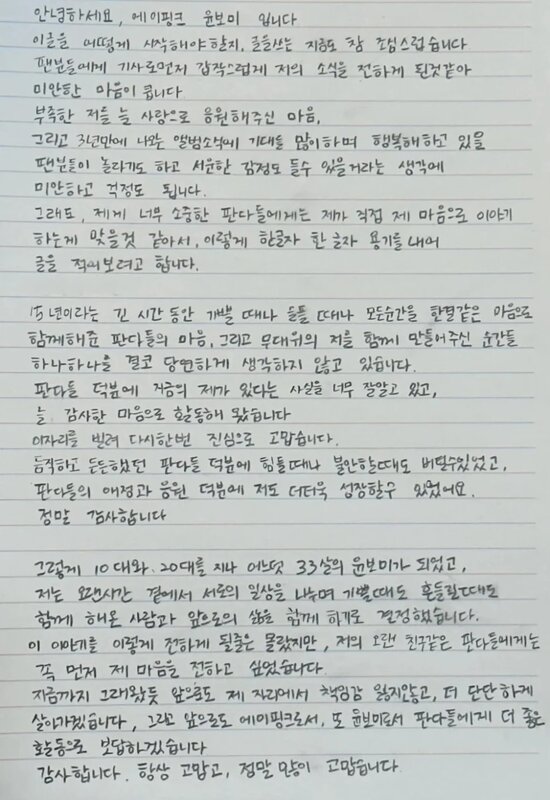 안녕하세요, 에이핑크 윤보미 입니다
이글을 어떻게 시작해야할지, 글을쓰는 지금도 참 조심스럽습니다
팬분들에게 기사로먼저 갑작스럽게 저의 소식을 전하게 된것같아
미안한 마음이 큽니다
부족한 저를 늘 사랑으로 응원해주신 마음,
그리고 3년만에 나오는 앨범소식에 기대를 많이하며 행복해하고 있을
팬분들이 놀라기도 하고 서운한 감정도 들수 있을거라는 생각에
미안하고 걱정도 됩니다.
그래도, 제게 너무 소중한 판다들에게는 제가 직접 제 마음으로 이야기
하는게 맞을것 같아서, 이렇게 한글자 한 글자 용기를 내어
글을 적어보려고 합니다.
15년이라는 긴 시간동안 기쁠 때나 힘들 때나 모든순간을 한결같은 마음으로
함께해준 판다들의 마음, 그리고 무대위의 저를 함께 만들어주신 순간들
하나하나를 결코 당연하게 생각하지 않고 있습니다.
판다들 덕분에 지금의 제가 있다는 사실을 너무 잘알고 있고,
늘 감사한 마음으로 활동해 왔습니다
이자리를 빌려 다시한번 진심으로 고맙습니다.
듬직하고 든든했던 판다들 덕분에 힘들때나 불안할때도 버틸수있었고,
판다들의 애정과 응원 덕분에 저도 더더욱 성장할수 있었어요.
정말 감사합니다
그렇게 10대와 20대를 지나 어느덧 33살의 윤보미가 되었고,
저는 오랜시간 곁에서 서로의 일상을 나누며 기쁠때도 흔들릴때도
함께 해온 사람과 앞으로의 삶을 함께 하기로 결정했습니다.
이 이야기를 이렇게 전하게 될줄은 몰랐지만, 저의 오랜 친구같은 판다들에게는
꼭 먼저 제 마음을 전하고 싶었습니다.
지금까지 그래왔듯 앞으로도 제 자리에서 책임감 잃지않고, 더 단단하게
살아가겠습니다, 그리고 앞으로도 에이핑크로서, 또 윤보미로서 판다들에게 더 좋은
활동으로 보답하겠습니다
감사합니다. 항상 고맙고, 정말 많이 고맙습니다.